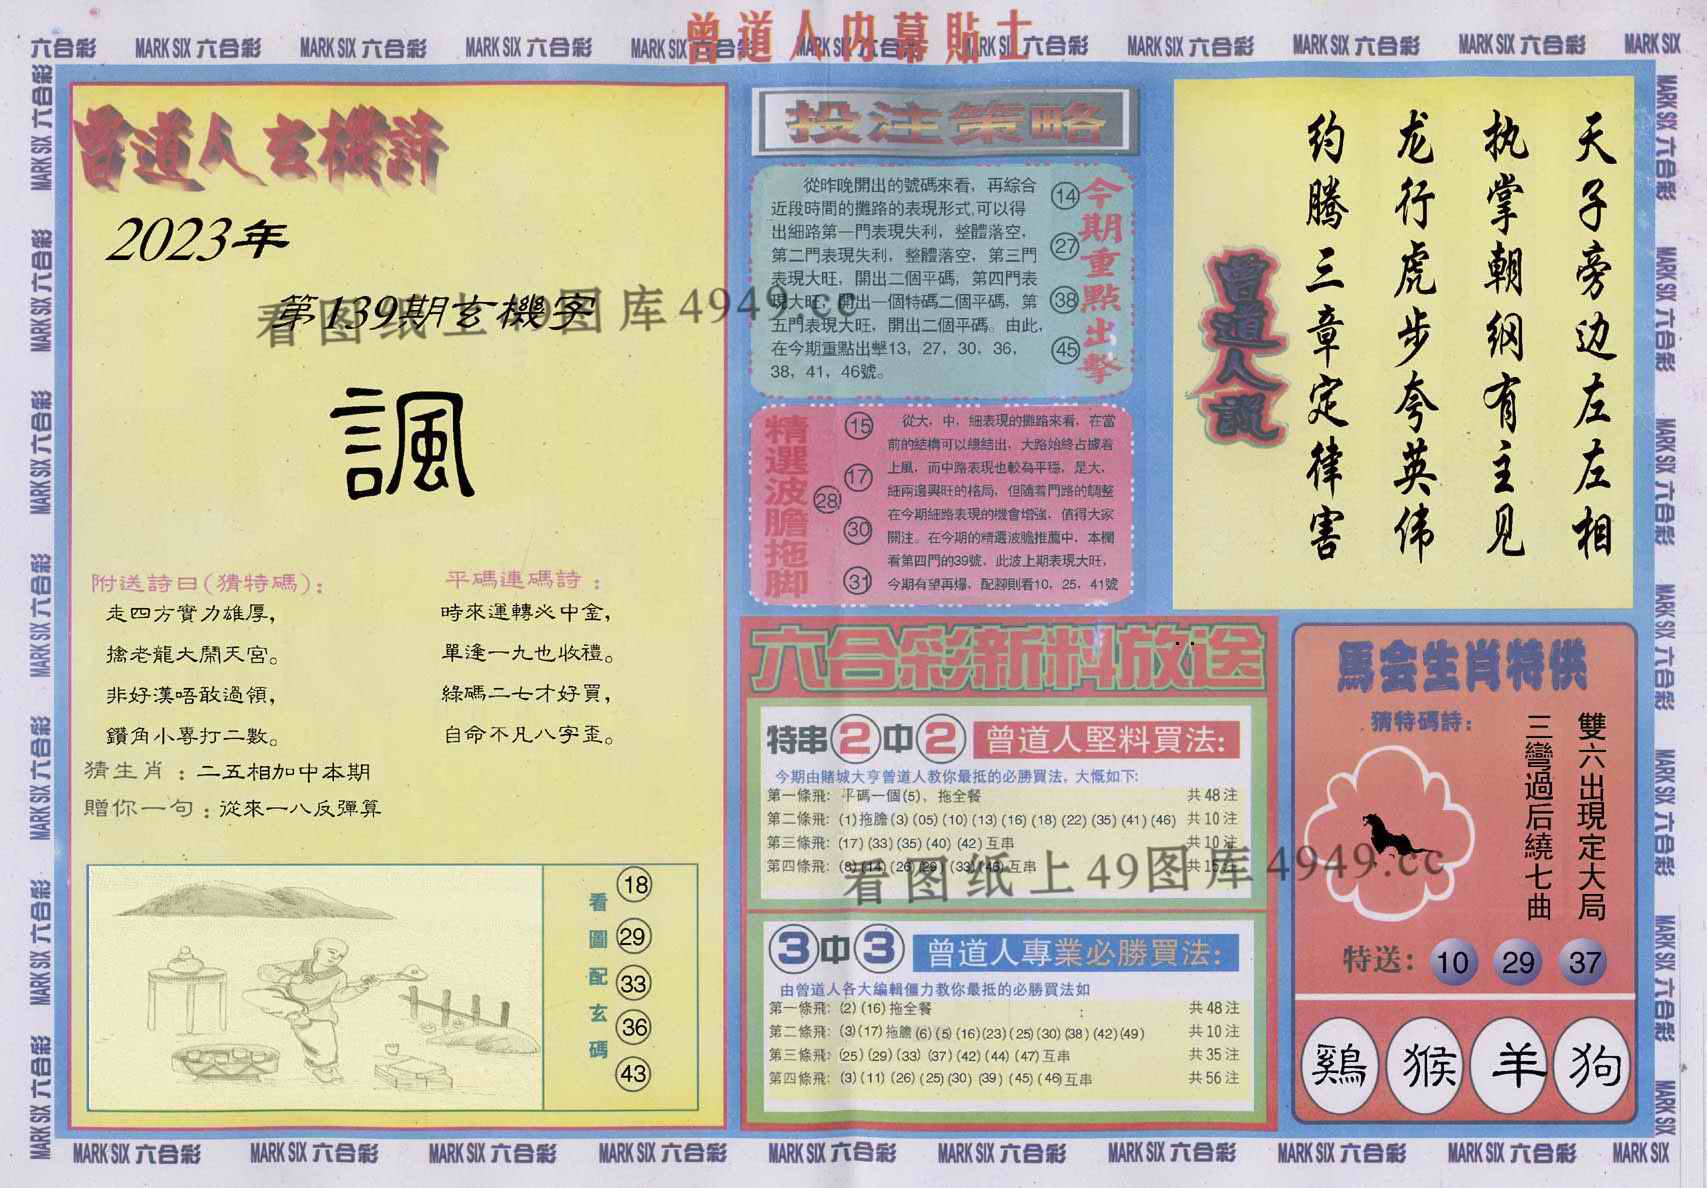 曾道人内幕貼士
六合彩 MARK SIX 六合彩 MARK SIX 六合彩 MARK SIX 六合彩 MARK SIX 六合彩 MARK SIX 六合彩 MARK SIX 六合彩 MARK SIX 六合彩 MARK SIX 六合彩 MARK SIX 六合彩 MARK SIX
曾道人玄機詩
2023年
第139期玄機字
諷
附送詩曰(猜特碼):
走四方實力雄厚,
擒老龍大鬧天宮。
非好漢唔敢過領,
鑽角小專打二數。
平碼連碼詩:
時來運轉必中金,
單逢一九也收禮。
綠碼二七才好買,
自命不凡八字歪。
猜生肖:二五相加中本期
贈你一句:從來一八反彈算
看圖配玄碼
18
29
33
36
43
投注策略
從昨晚開出的號碼來看，再綜合
近段時間的攤路的表現形式,可以得
出細路第一門表現失利，整體落空，
第二門表現失利，整體落空，第三門
表現大旺，開出二個平碼，第四門表
現大旺，開出一個特碼二個平碼，第
五門表現大旺，開出二個平碼。由此，
在今期重點出擊13，27，30，36，
38，41，46號。
14
27
38
45
今期重點出擊
精選波膽拖脚
15
17
28
30
31
從大，中，細表現的攤路來看，在當
前的結構可以總結出，大路始終占據着
上風，而中路表現也較為平穩，是大，
細兩邊興旺的格局，但隨着門路的調整
在今期細路表現的機會增強，值得大家
關注。在今期的精選波膽推薦中，本欄
看第四門的39號，此波上期表現大旺，
今期有望再爆，配腳則看10，25，41號
天子旁边左左相
执掌朝纲有主见
龙行虎步夸英伟
约腾三章定律害
曾道人說
六合彩新料放送
特串2中2 曾道人堅料買法:
今期由賭城大亨曾道人教你最抵的必勝買法，大慨如下:
第一條飛: 平碼一個(5)，拖全餐 共48注
第二條飛: (1)拖膽(3)(05)(10)(13)(16)(18)(22)(35)(41)(46) 共10注
第三條飛: (17)(33)(35)(40)(42)互串 共10注
第四條飛: (8)(14)(26)(29)(33)(46)互串 共15注
3中3 曾道人專業必勝買法:
由曾道人各大編輯僵力教你最抵的必勝買法如
第一條飛: (2)(16)拖全餐 共48注
第二條飛: (3)(17)拖膽(6)(5)(16)(23)(25)(30)(38)(42)(49) 共10注
第三條飛: (25)(29)(33)(37)(42)(44)(47)互串 共35注
第四條飛: (3)(11)(26)(25)(30)(39)(45)(46)互串 共56注
馬会生肖特供
猜特碼詩:
雙六出現定大局
三彎過后繞七曲
特送: 10 29 37
鷄 猴 羊 狗
看图纸上49图库4949.cc
看图纸上49图库4949.cc
MARK SIX 六合彩 MARK SIX 六合彩 MARK SIX 六合彩 MARK SIX 六合彩 MARK SIX 六合彩 MARK SIX 六合彩 MARK SIX 六合彩 MARK SIX 六合彩 MARK SIX 六合彩 MARK SIX